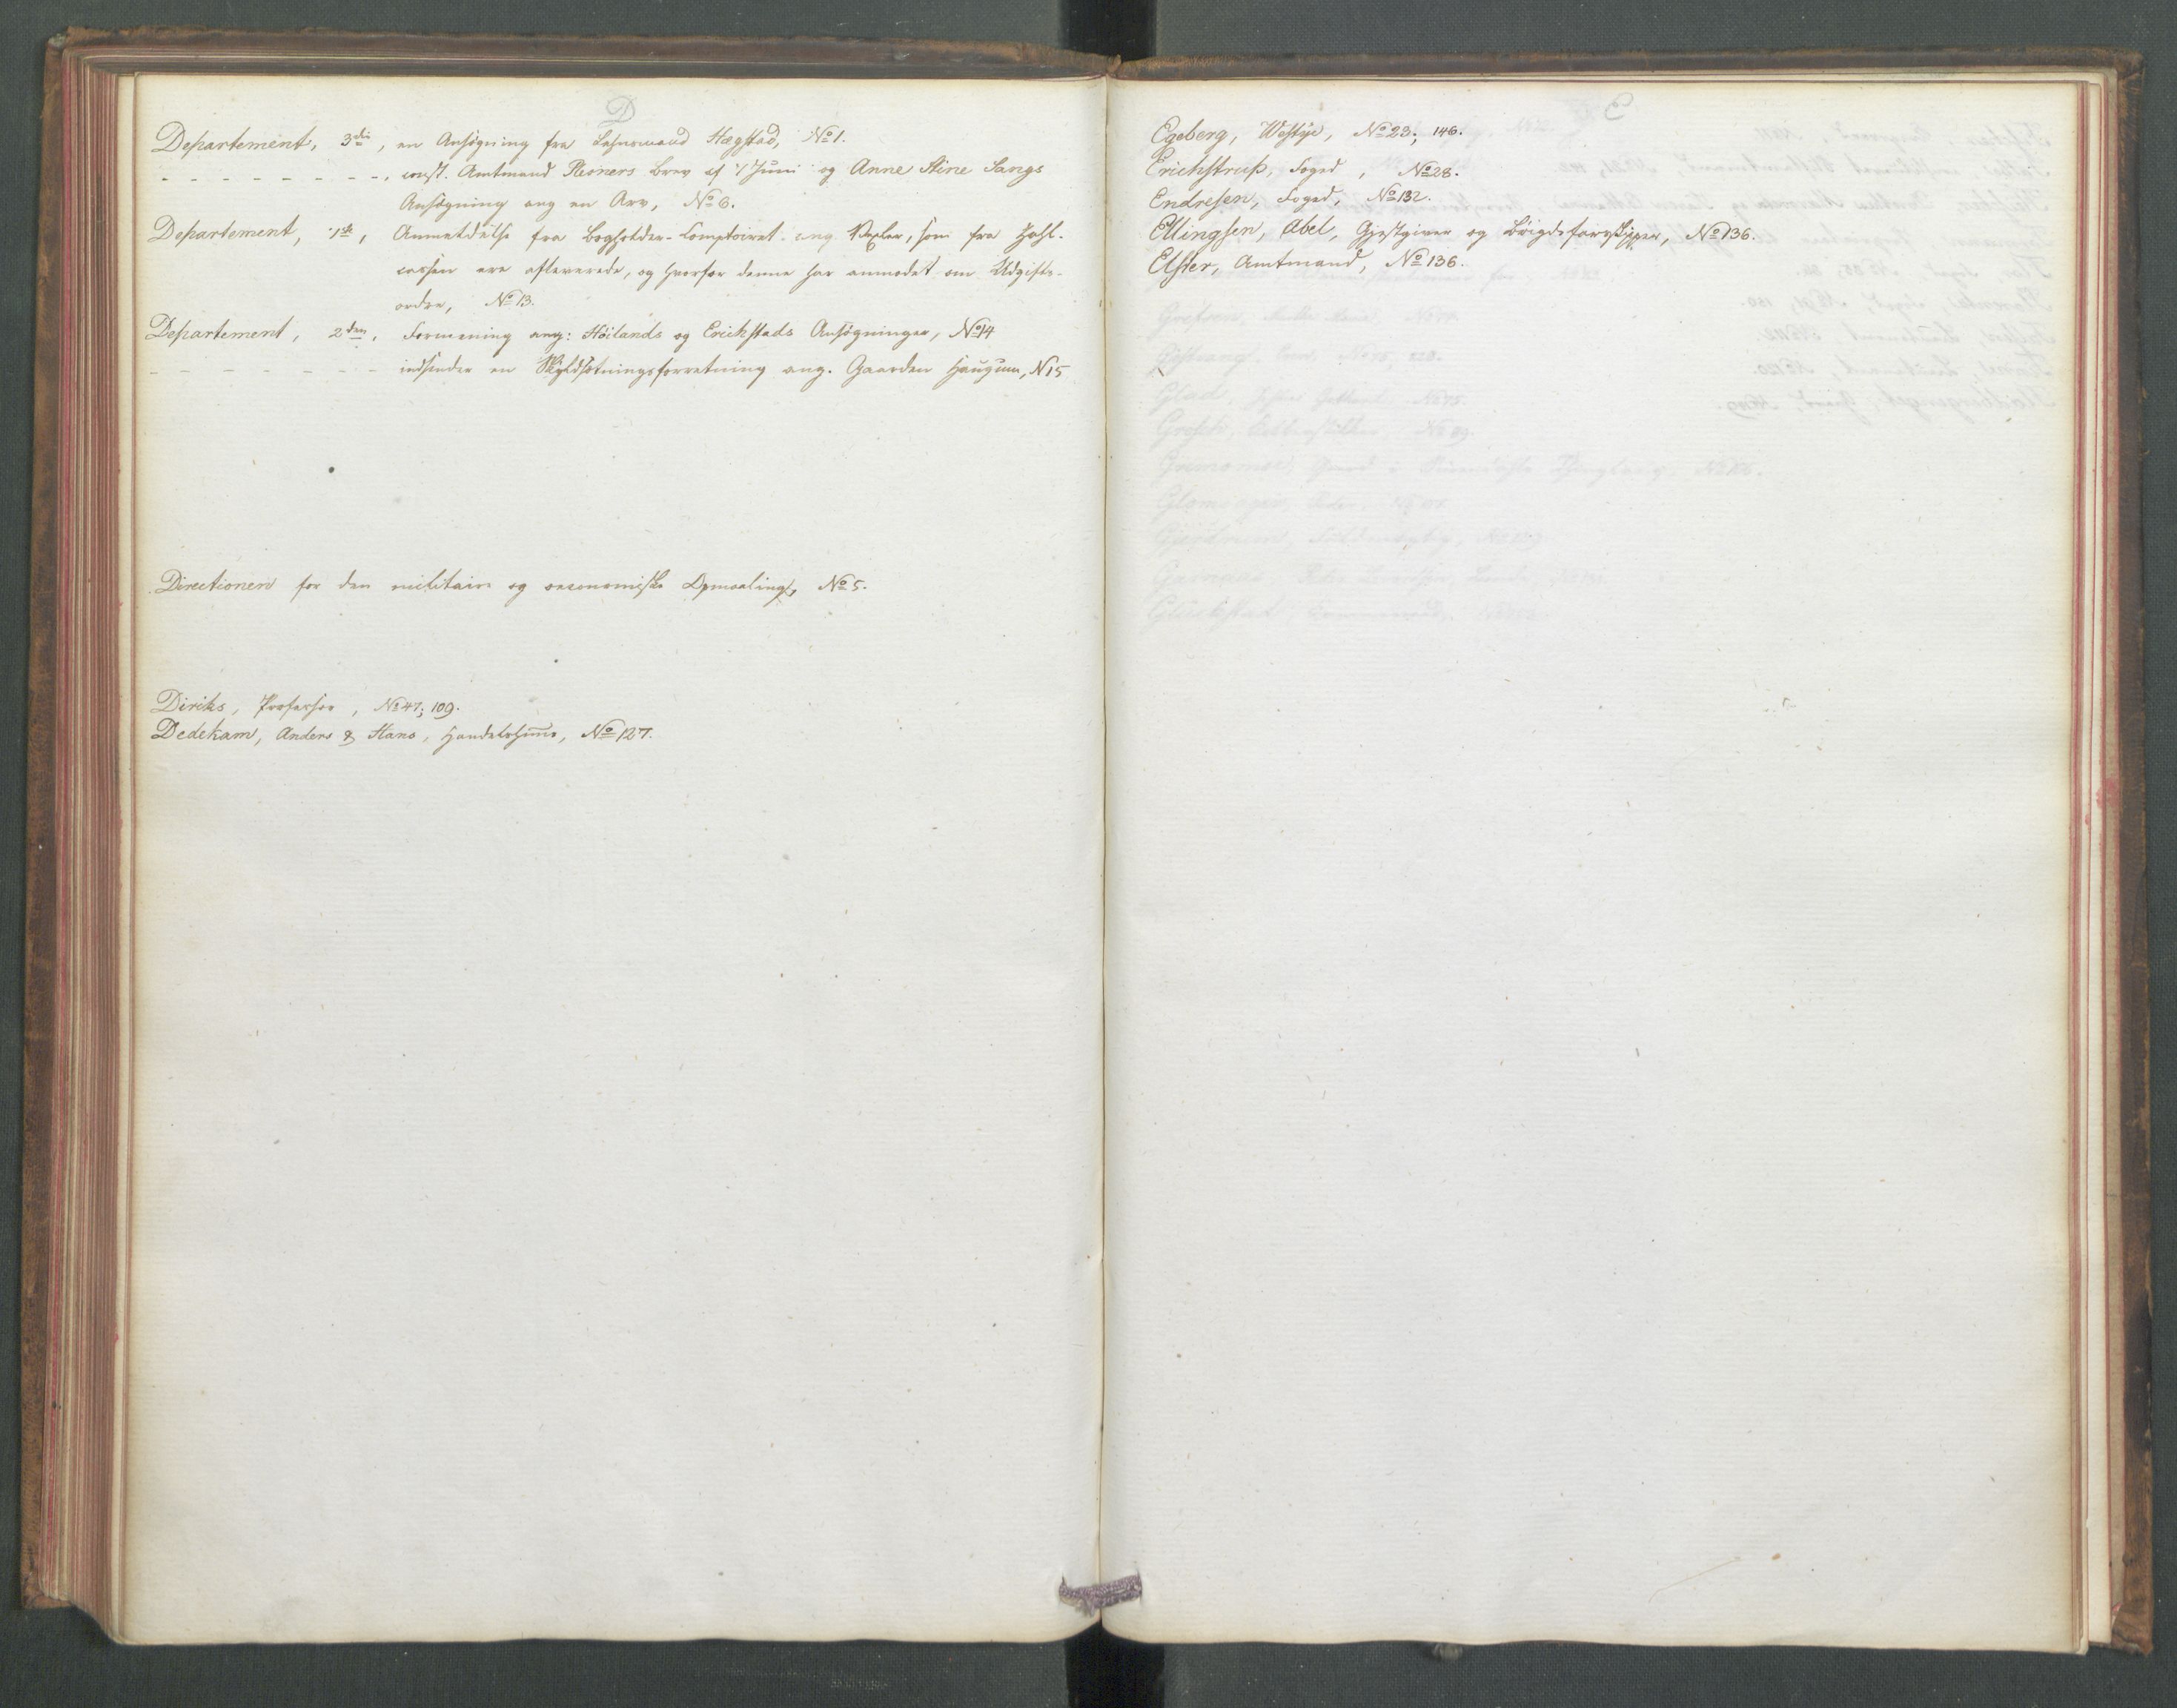 D
Departement, 3die, en Ansögning fra Lehnsmand Hægstad, No 1.
- - - - - - - - -, const. Amtmand Steners Brev af 7 Juni og Anne Stine Langs
Ansögning ang en Arv, No 6.
Departement, 1ste, Anmeldelse fra Bogholder-Comptoiret ang Vexler, som fra Zahl-
cassen ere afleverede, og hvorfor denne har anmodet om Udgifts-
ordre, No 13.
Departement, 2den, Formening ang: Höilands og Erichstads Ansögninger, No 14
- - - - - - - - indsender en Skyldsætningsforretning ang. Gaarden Haugum, N 15
Directionen for den militaire og oeconomiske Opmaaling, No 5.
Diriks, Professor, No 47; 109.
Dedekam, Anders & Hans, Handelshuus, No 127.
E
Egeberg, Westye, No 23; 146.
Erichstrup, Foged, No 28.
Endresen, Foged, No 132.
Ellingsen, Abel, Gjæstgiver og Böigdefarskipper, No 136.
Elster, Amtmand, No 136.